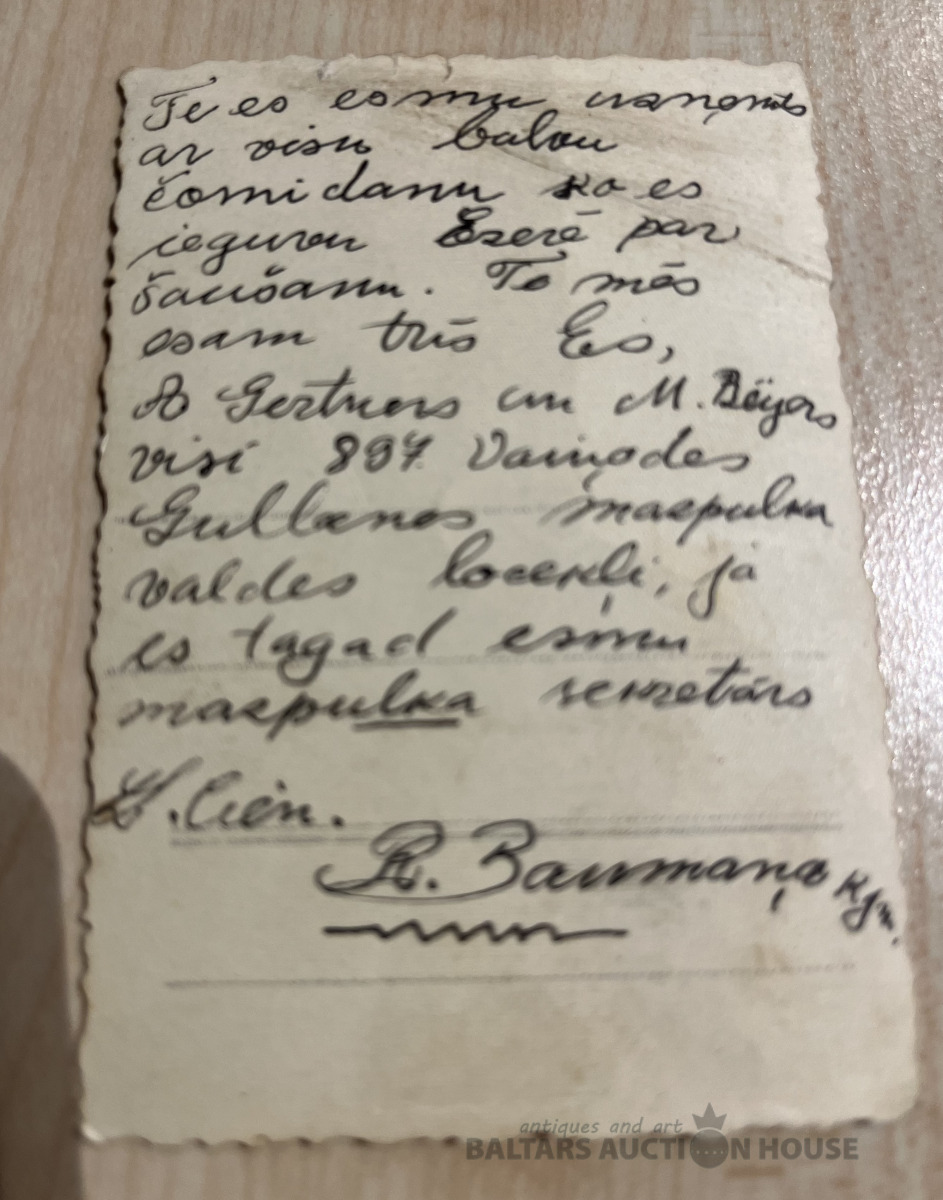 Te es esmu uzņemts
ar visu balvu
čomidanu ko es
ieguvu Ezerē par
šaušanu. Te mēs
esam trīs Es,
A Gertners un M. Bëijers
visi 897. Vaiņodes
mazpulka
valdes locekļi, ja
es tagad esmu
mazpulka sekretārs
Z. cien.
R. Baumaņa kgn.
antiques and art
BALTARS AUCTION HOUSE